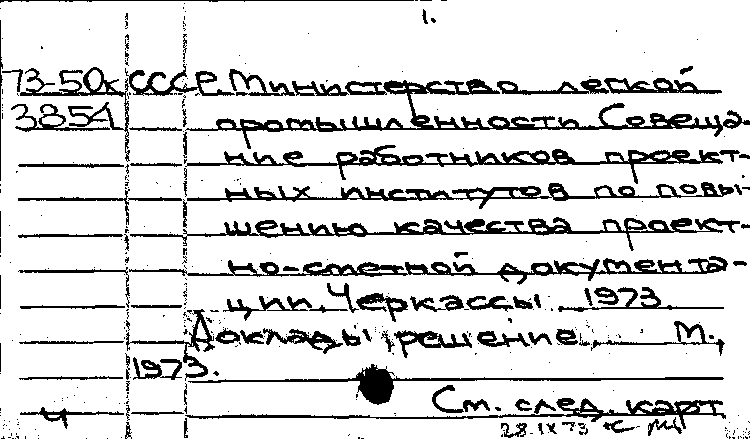 1.
73-50к СССР. Министерство легкой
3854 промышленности. Совеща-
ние работников проект-
ных институтов по повы-
шению качества проект-
но-сметной документа-
ции. Черкассы. 1973.
Доклады, решение. М.,
1973.
См. след. карт.
ч 28.IX 73